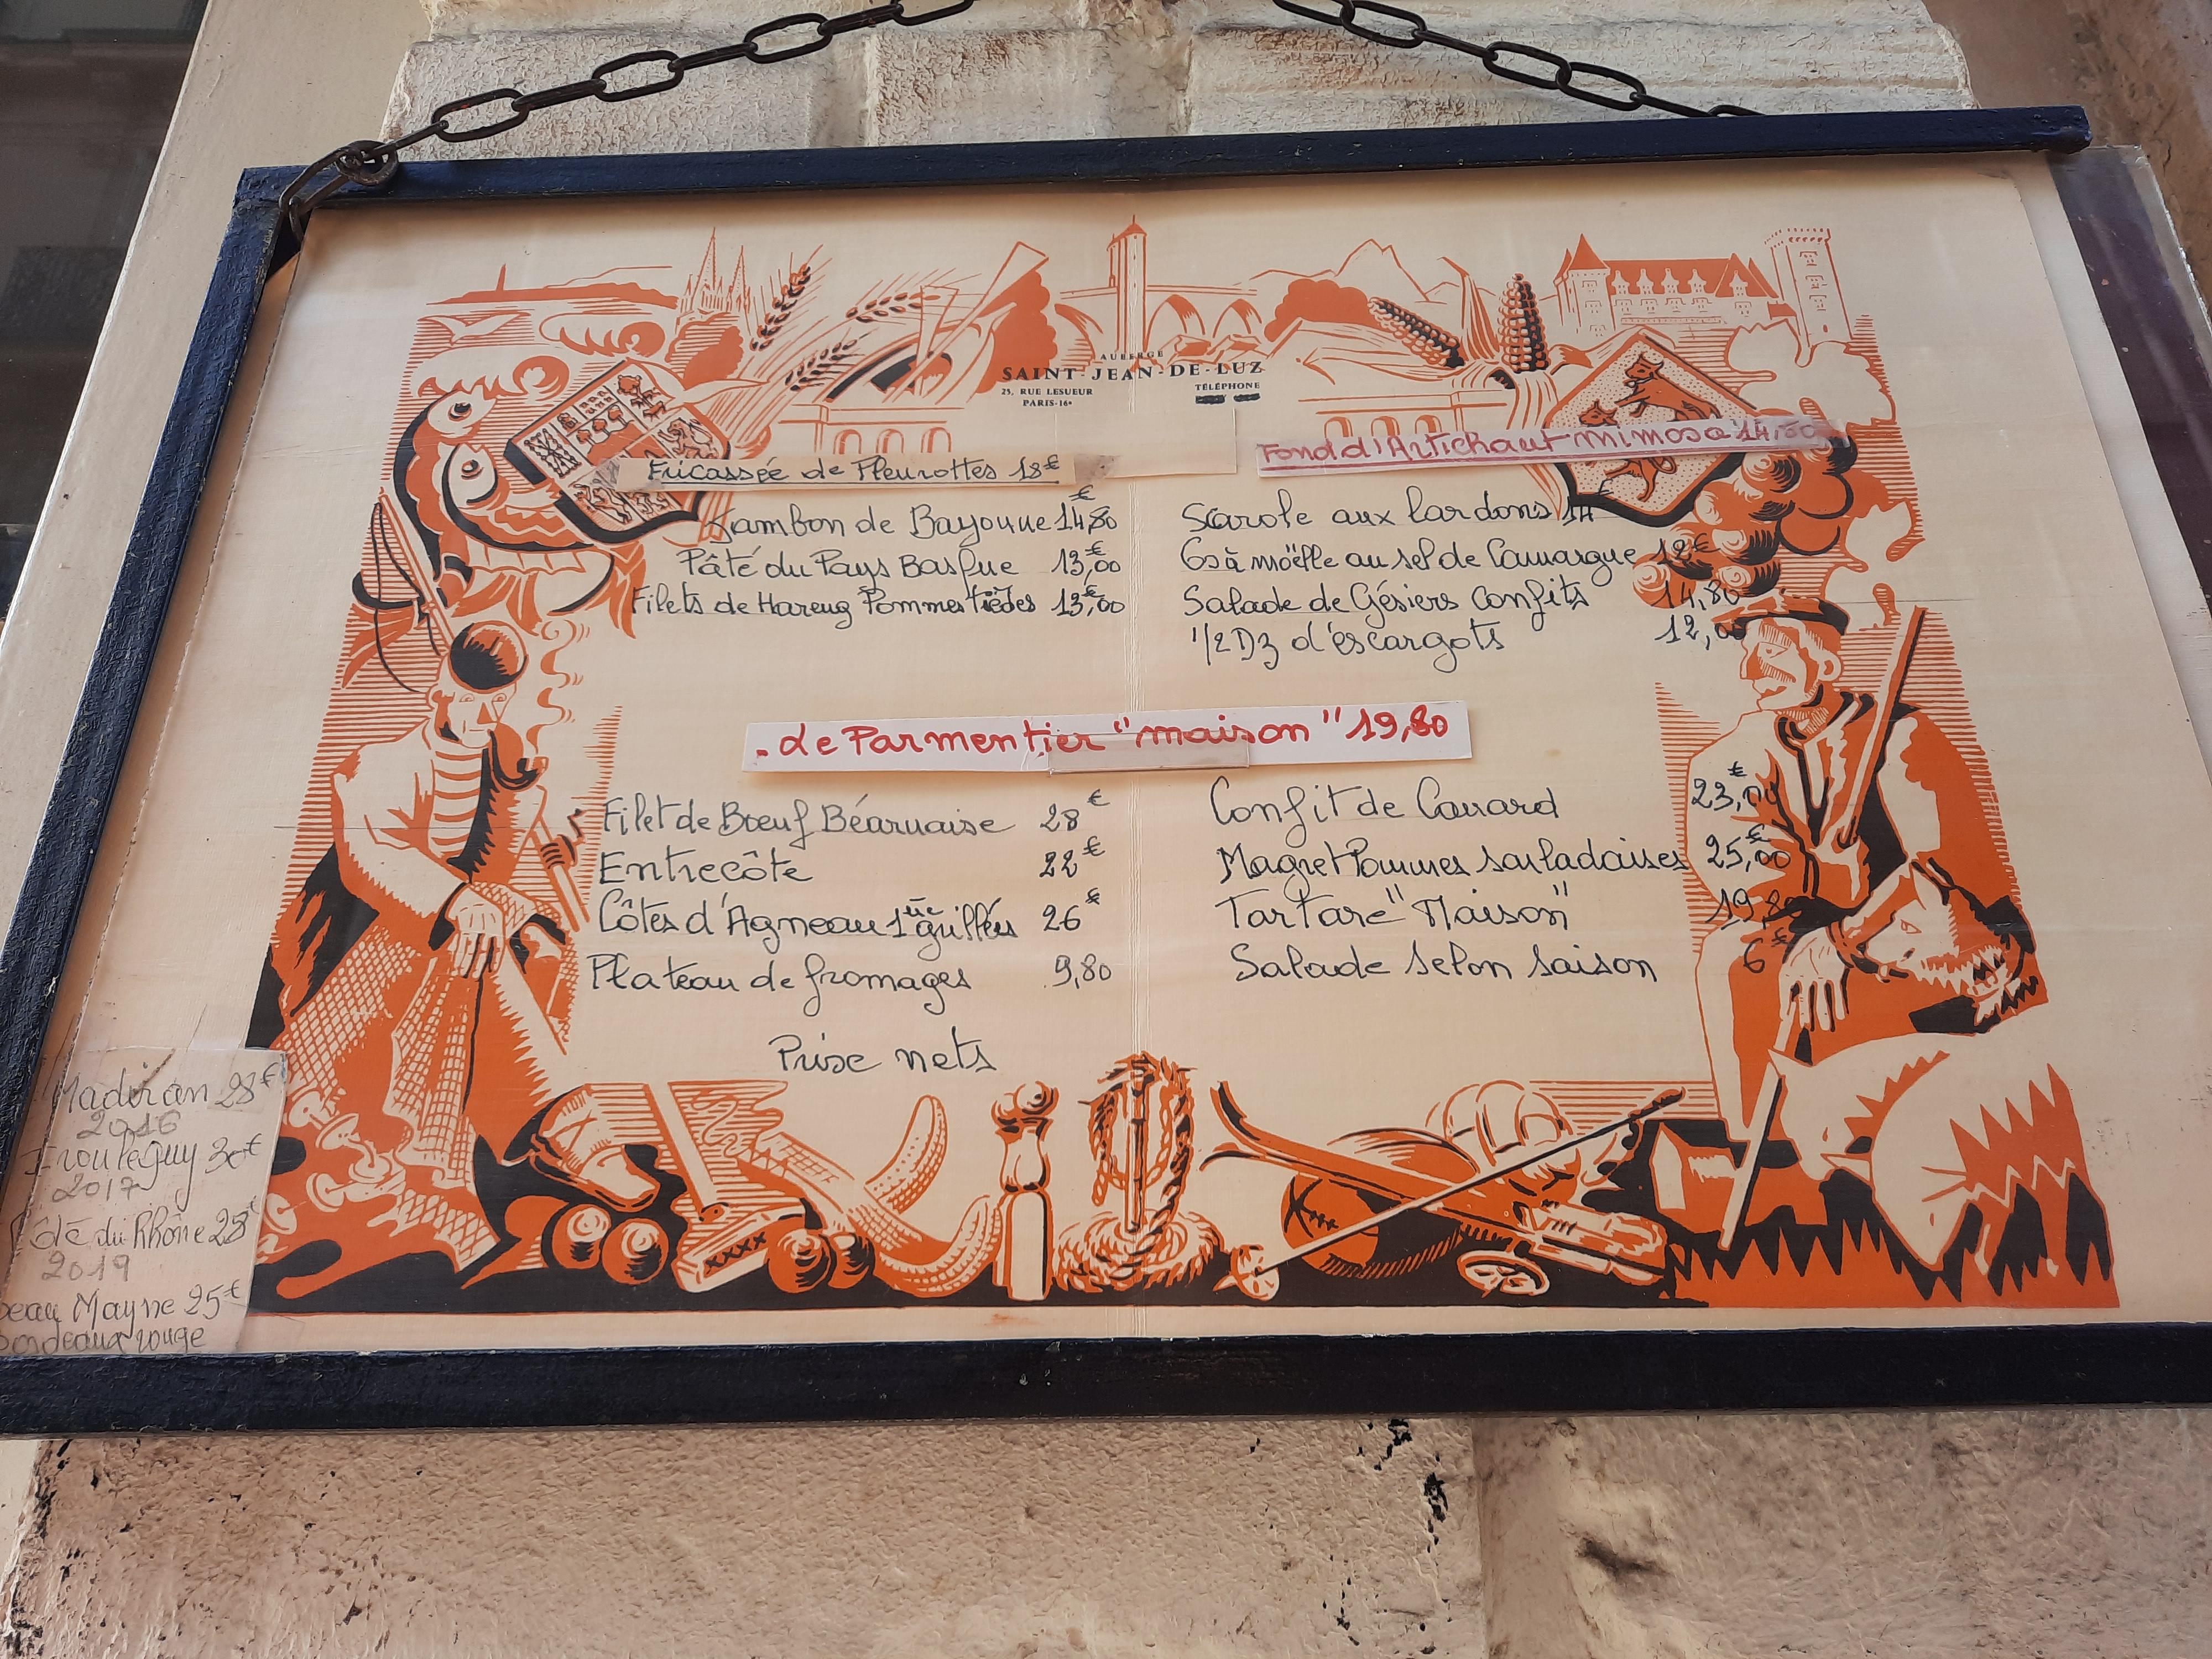 AUBERGE
SAINT-JEAN-DE-LUZ
25, RUE LESUEUR
PARIS-16e
TÉLÉPHONE
Fricassée de Pleurottes 18€
Jambon de Bayonne 14,80€
Pâté du Pays Basque 13,00€
Filets de Hareng Pommes tièdes 13,00€
Fond d'Artichaut mimosa 14,80
Scarole aux lardons 14€
Os à moëlle au sel de Camargue 12€
Salade de Gésiers Confits 14,80
1/2 Dz d'éscargots 12,00
- Le Parmentier "maison" 19,80
Filet de Bœuf Béarnaise 28€
Entrecôte 22€
Côtes d'Agneau 1ère grillées 26€
Plateau de fromages 9,80
Confit de Canard 23,00€
Magret Pommes sarladaises 25,00€
Tartare "Maison" 19,80
Salade selon saison 6€
Prix nets
Madiran 28€
2016
Irouleguy 30€
2017
Côte du Rhône 28€
2019
beau Mayne 25€
Bordeaux rouge